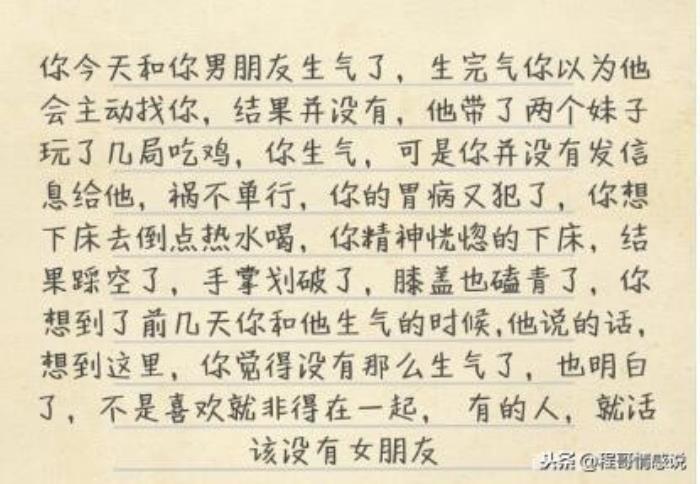 你今天和你男朋友生气了，生完气你以为他
会主动找你，结果并没有，他带了两个妹子
玩了几局吃鸡，你生气，可是你并没有发信
息给他，祸不单行，你的胃病又犯了，你想
下床去倒点热水喝，你精神恍惚的下床，结
果踩空了，手掌划破了，膝盖也磕青了，你
想到了前几天你和他生气的时候,他说的话,
想到这里，你觉得没有那么生气了，也明白
了，不是喜欢就非得在一起， 有的人，就活
该没有女朋友
头条 @程哥情感说